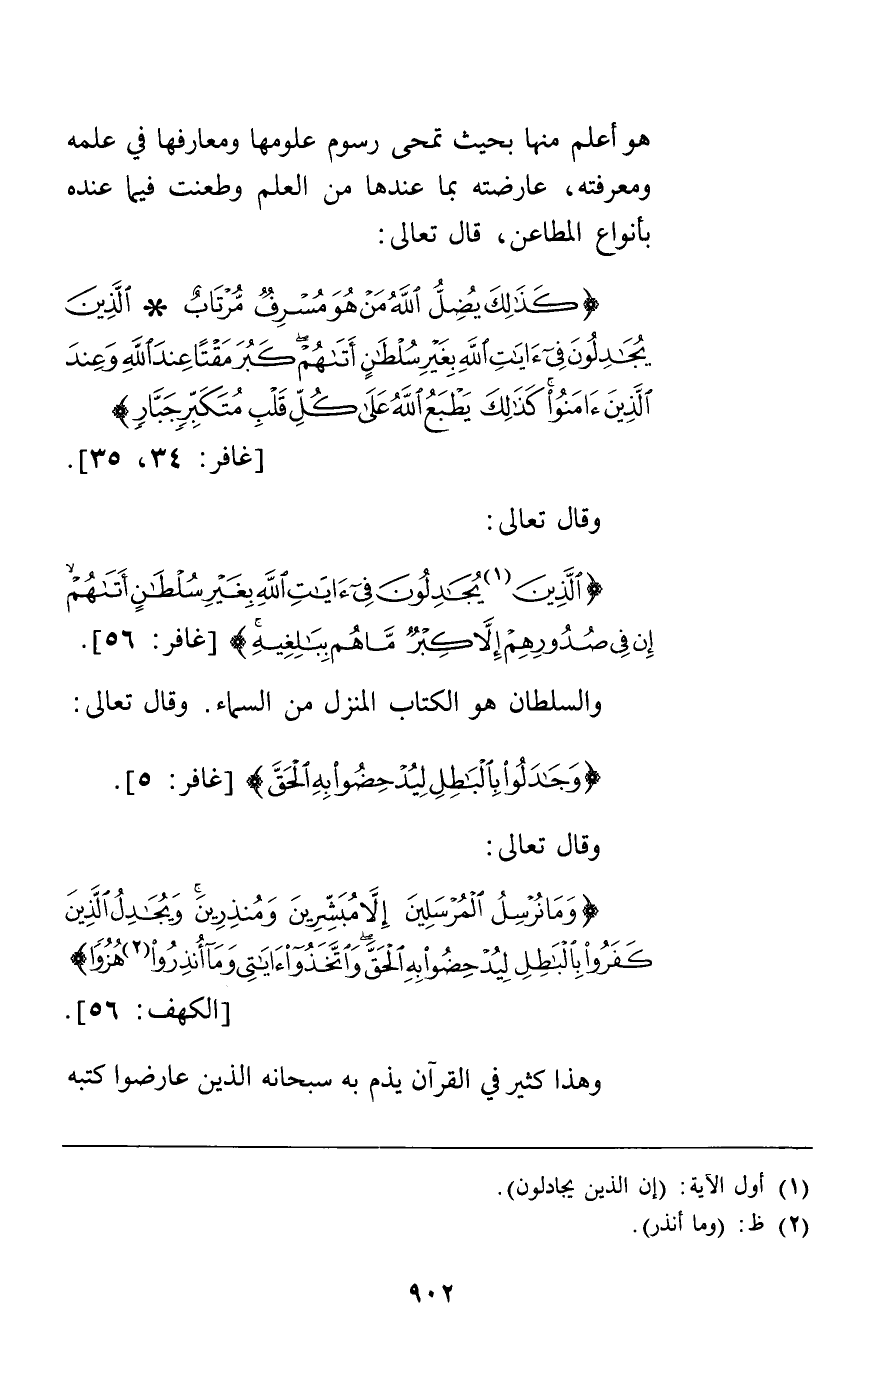 هو أعلم منها بحيث تمحى رسوم علومها ومعارفها في علمه
ومعرفته، عارضته بما عندها من العلم وطعنت فيما عنده
بأنواع المطاعن، قال تعالى:
﴿كَذَٰلِكَ يُضِلُّ ٱللَّهُ مَنْ هُوَ مُسْرِفٌ مُّرْتَابٌ * ٱلَّذِينَ
يُجَٰدِلُونَ فِىٓ ءَايَٰتِ ٱللَّهِ بِغَيْرِ سُلْطَٰنٍ أَتَىٰهُمْۖ كَبُرَ مَقْتًا عِندَ ٱللَّهِ وَعِندَ
ٱلَّذِينَ ءَامَنُوا۟ۚ كَذَٰلِكَ يَطْبَعُ ٱللَّهُ عَلَىٰ كُلِّ قَلْبِ مُتَكَبِّرٍ جَبَّارٍ﴾
[غافر: ٣٤، ٣٥].
وقال تعالى:
﴿ٱلَّذِينَ (١) يُجَٰدِلُونَ فِىٓ ءَايَٰتِ ٱللَّهِ بِغَيْرِ سُلْطَٰنٍ أَتَىٰهُمْۙ
إِن فِى صُدُورِهِمْ إِلَّا كِبْرٌ مَّا هُم بِبَٰلِغِيهِۚ﴾ [غافر: ٥٦].
والسلطان هو الكتاب المنزل من السماء. وقال تعالى:
﴿وَجَٰدَلُوا۟ بِٱلْبَٰطِلِ لِيُدْحِضُوا۟ بِهِ ٱلْحَقَّ﴾ [غافر: ٥].
وقال تعالى:
﴿وَمَا نُرْسِلُ ٱلْمُرْسَلِينَ إِلَّا مُبَشِّرِينَ وَمُنذِرِينَۚ وَيُجَٰدِلُ ٱلَّذِينَ
كَفَرُوا۟ بِٱلْبَٰطِلِ لِيُدْحِضُوا۟ بِهِ ٱلْحَقَّۖ وَٱتَّخَذُوٓا۟ ءَايَٰتِى وَمَآ أُنذِرُوا۟ (٢) هُزُوًا﴾
[الكهف: ٥٦].
وهذا كثير في القرآن يذم به سبحانه الذين عارضوا كتبه
(١) أول الآية: (إن الذين يجادلون).
(٢) ظ: (وما أنذر).
٩٠٢